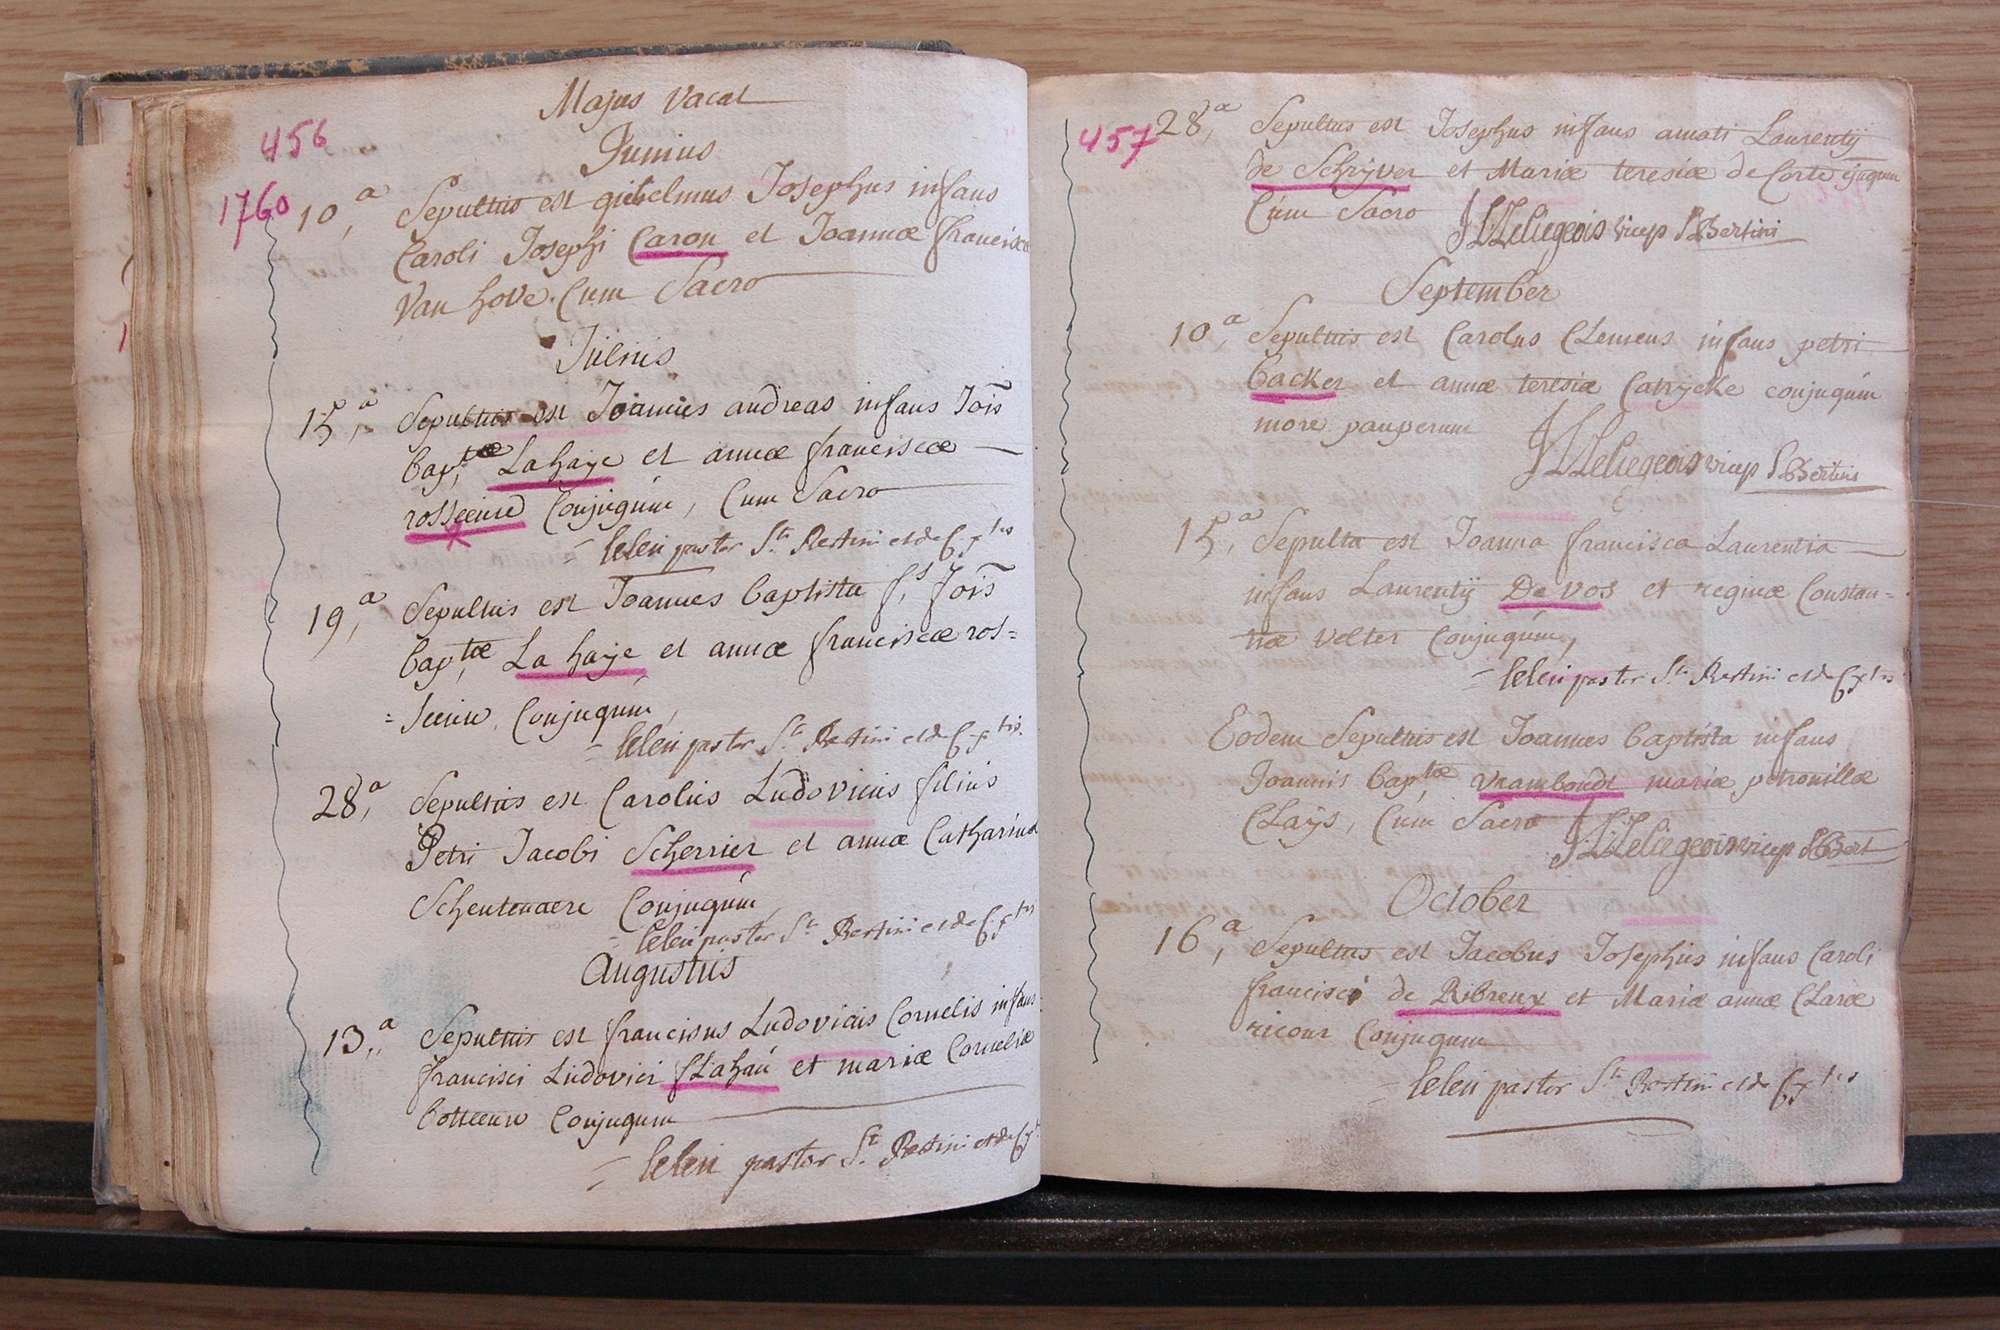 Majus vacat
456
Junius
1760
10,a Sepultus est gielelmus Josephus infans
Caroli Josephi Caron et Joannæ francisca
Van hove. Cum Sacro
Julius
15,a Sepultus est Joannes andreas infans Jois
bap,tæ La haije et annæ franciscæ
Conjugum, Cum Sacro
= leleu pastor St Bertini et de Extris
19,a Sepultus est Joannes baptista f,s Jois
bap,tæ La haije et annæ franciscæ ros=
Conjugum,
= leleu pastor St Bertini et de Extris.
28,a Sepultus est Carolus Ludovicus filius
Petri Jacobi Scherrier et annæ Catharinæ
Scheutenaere Conjugum,
= leleu pastor St Bertini et de Extris
Augustus
13,,a Sepultus est franciscus Ludovicus Cornelis infans
francisci Ludovici flahau et mariæ Corneliæ
Conjugum
= leleu pastor St Bertini et de Ext
457
28,a Sepultus est Josephus infans amati Laurentij
de Schrijver et Mariæ teresiæ de Corte
Cum Sacro JLLeliegeois vicep St Bertini
September
10,a Sepultus est Carolus Clemens infans petri
backer et annæ teresiæ Catrijcke conjugum
more pauperum JLLeliegeois vicep St Bertini
15,a Sepulta est Joanna francisca Laurentia
infans Laurentij De vos et reginæ Constan=
tiæ velter Conjugum,
= leleu pastor St Bertini et de Extris
Eodem Sepultus est Joannes baptista infans
Joannis bap,tæ vramboudt mariæ petronillæ
Claijs, Cum Sacro JLLeliegeois vicep St Bert
October
16,a Sepultus est Jacobus Josephus infans Caroli
francisci de Ribreux et Mariæ annæ Claræ
ricour Conjugum
= leleu pastor St Bertini et de Extris